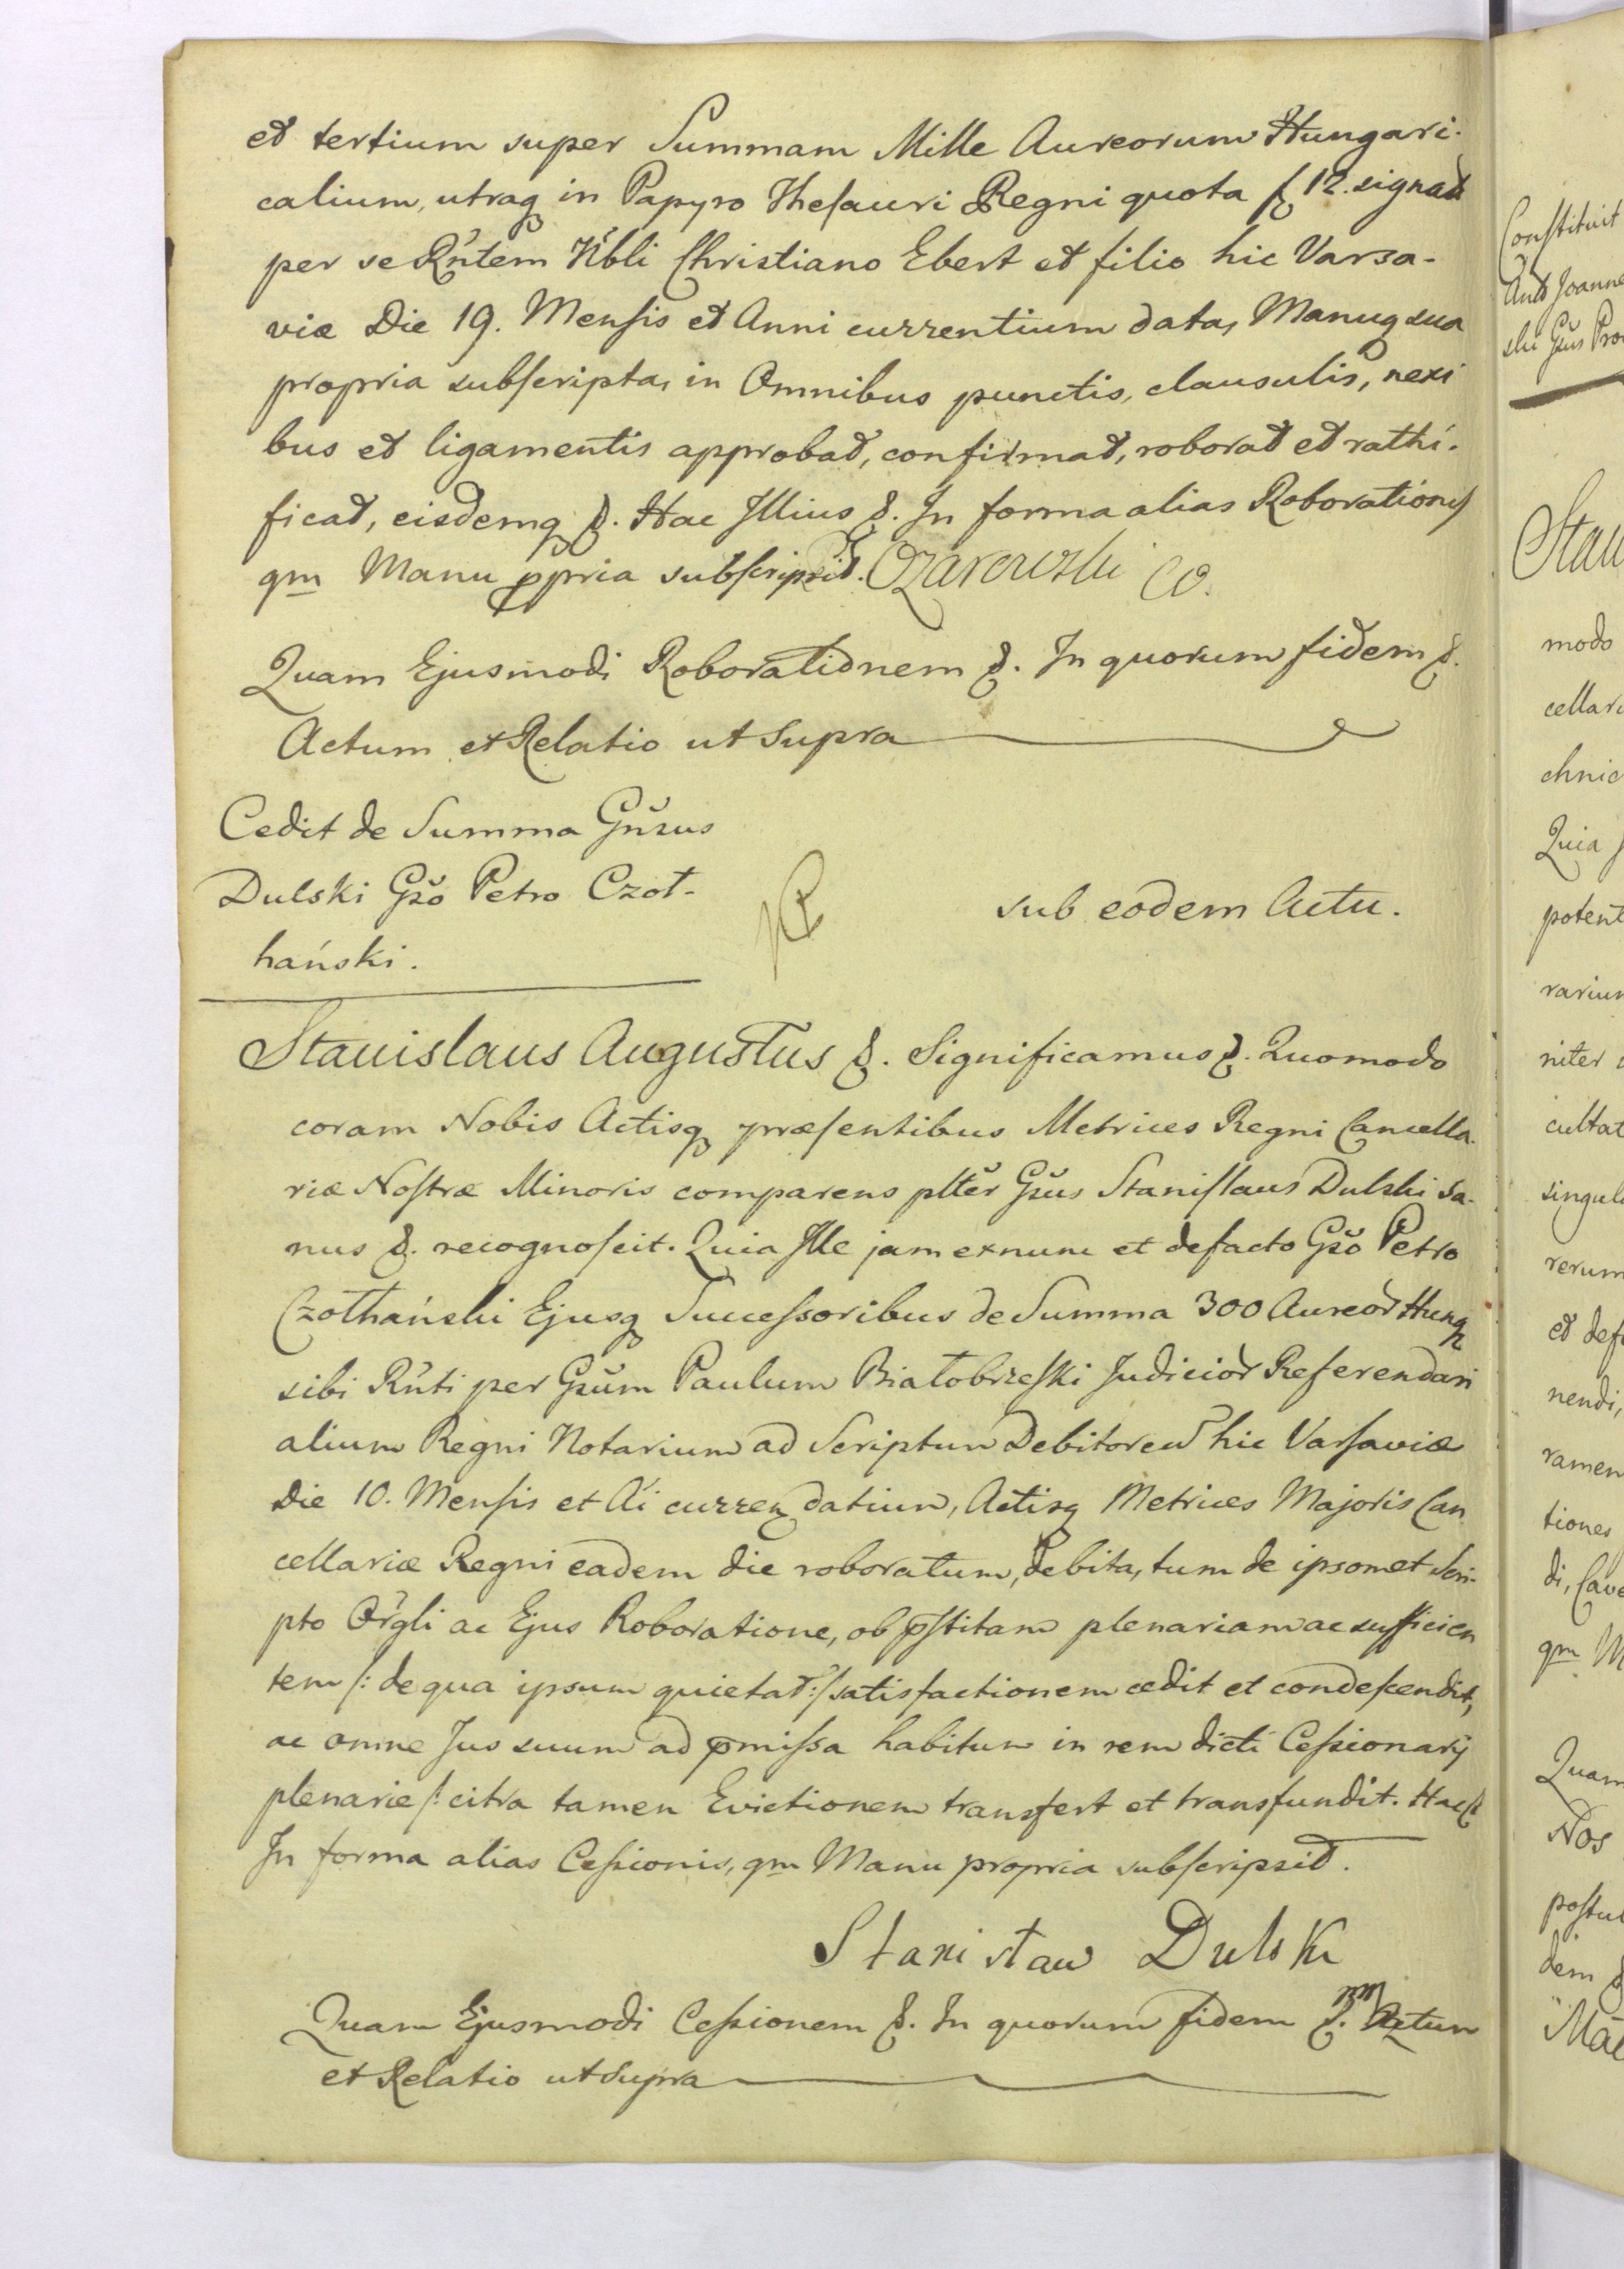 et tertium super Summam Mille Aureorum Hungari-
calium, utraq in Papyro Thesauri Regni quota f 12. signat
per se Rñtem Nbli Christiano Ebert et filio hic Varsa-
viæ Die 19. Mensis et Anni currentium data, Manuq sua
propria subscripta, in Omnibus punctis, clausulis, nexi
bus et ligamentis approbat, confirmat, roborat et rathi-
ficat, eisdemq &. Hac Illius &. In forma alias Roborationis
qm Manu ppria subscripsit. Ożarowski CO.
Quam Ejusmodi Roborationem &. In quorum fidem &.
Actum et Relatio ut Supra
Cedit de Summa Gñsus
Dulski Gso Petro Czoł-
hański.
sub eodem Actu.
Stanislaus Augustus &. Significamus &. Quomodo
coram Nobis Actisq præsentibus Metrices Regni Cancella-
riæ Nostræ Minoris comparens plter Gsus Stanislaus Dulski sa-
nus &. recognoscit. Quia Ille jam exnunc et defacto Gso Petro
Czołhański Ejusq Successoribus de Summa 300 Aureor Hung
sibi Rñti per Gsum Paulum Białobrzeski Judicior Referendari
alium Regni Notarium ad Scriptum Debitoreu hic Varsaviæ
Die 10. Mensis et Ai curren datium, Actisq Metrices Majoris Can
cellariæ Regni eadem die roboratum, debita, tum de ipsomet Scri-
pto Orgli ac Ejus Roboratione, ob pstitam plenariam ac sufficien
tem /: de qua ipsum quietat :/ satisfactionem cedit et condescendit,
ac omne Jus suum ad pmissa habitum in rem dicti Cessionarij
plenarie /: citra tamen Evictionem transfert et transfundit. Hac &
In forma alias Cessionis, qm Manu propria subscripsit.
Stanisław Dulski
Quam Ejusmodi Cessionem &. In quorum fidem &. Actum
et Relatio ut Supra
Constituit
Joanne
modo
cellari
chnic
Quia
potent
rarium
niter
cultat
singul
rerum
et def
nendi,
ramen
tiones
di, Cave
qm M
Quam
Nos
postul
dem &